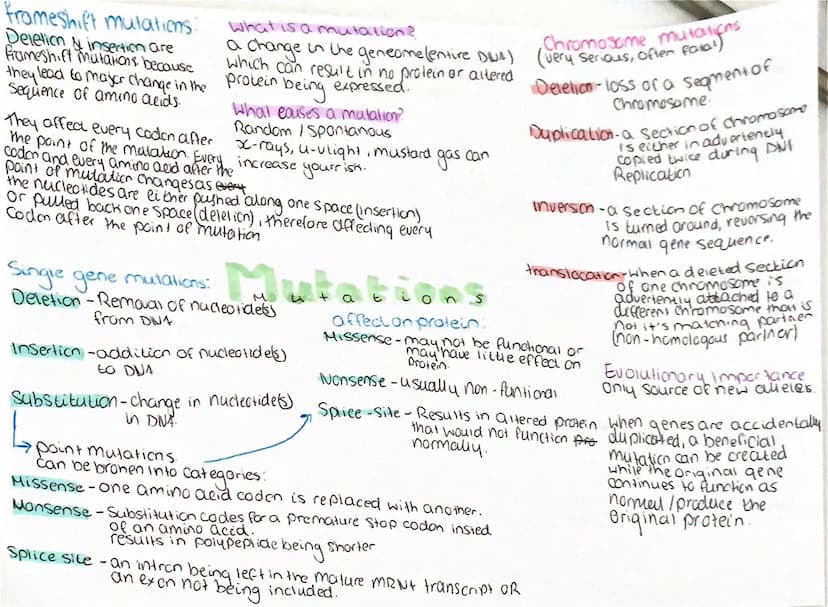 Frameshift mutations:
Deletion & insertion are
frameshift mutations because
they lead to major change in the
sequence of amino acids.
They affect every codon after
the point of the mutation. Every
codon and every amino acid after the
point of mutation changes as every
the nucleotides are either pushed along one space (insertion)
or pulled back one space (deletion), therefore affecting every
codon after the point of mutation
What is a mutation?
a change in the geneome (entire DNA)
which can result in no protein or altered
protein being expressed.
What causes a mutation?
Random / spontanous
x-rays, u-v light, mustard gas can
increase your risk.
Chromosome mutations
(very serious, often fatal)
Deletion - loss of a segment of
chromosome.
Duplication - a section of chromosome
is either inadvertently
copied twice during DNA
Replication
Inversion - a section of chromosome
is turned around, reversing the
normal gene sequence.
translocation - when a deleted section
of one chromosome is
advertently attached to a
different chromosome that is
not it's matching partner
(non-homologous partner)
Mutations
Mutations
Single gene mutations:
Deletion - Removal of nucleotide(s)
from DNA
Insertion - addition of nucleotide(s)
to DNA
Substitution - change in nucleotide(s)
in DNA.
point mutations
can be broken into categories:
Missense - one amino acid codon is replaced with another.
Nonsense - substitution codes for a premature stop codon insted
of an amino acid.
results in polypeptide being shorter
Splice site - an intron being left in the mature MRNA transcript OR
an exon not being included.
affect on protein:
Missense - may not be functional or
may have little effect on
protein.
Nonsense - usually non-funtional
Splice-site - Results in altered protein
that would not function pro
normally.
Evolutionary Importance
only source of new alleles.
when genes are accidentally
duplicated, a beneficial
mutation can be created
while the original gene
continues to function as
normal/produce the
original protein.